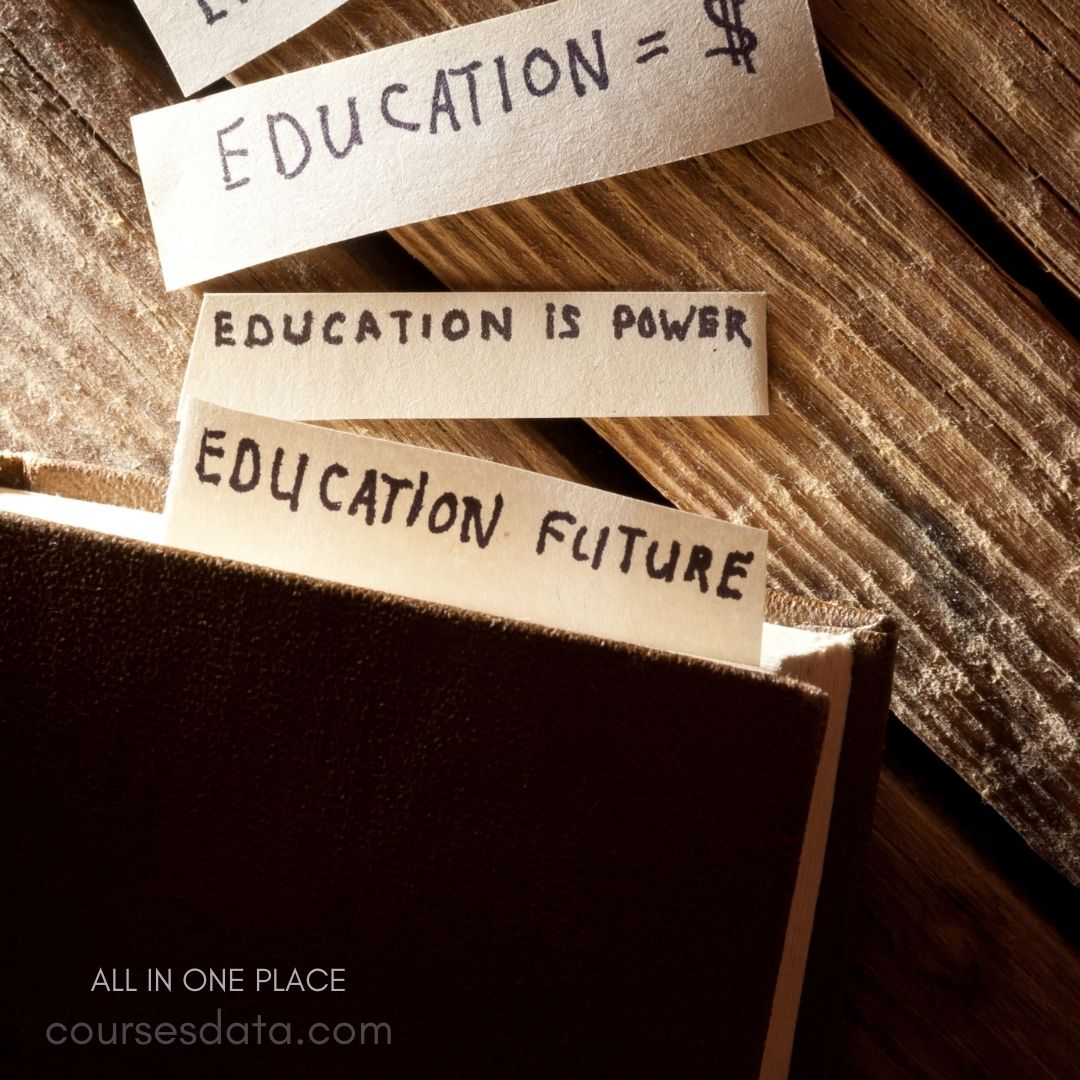 EDUCATION = $
EDUCATION IS POWER
EDUCATION FUTURE
ALL IN ONE PLACE
coursesdata.com